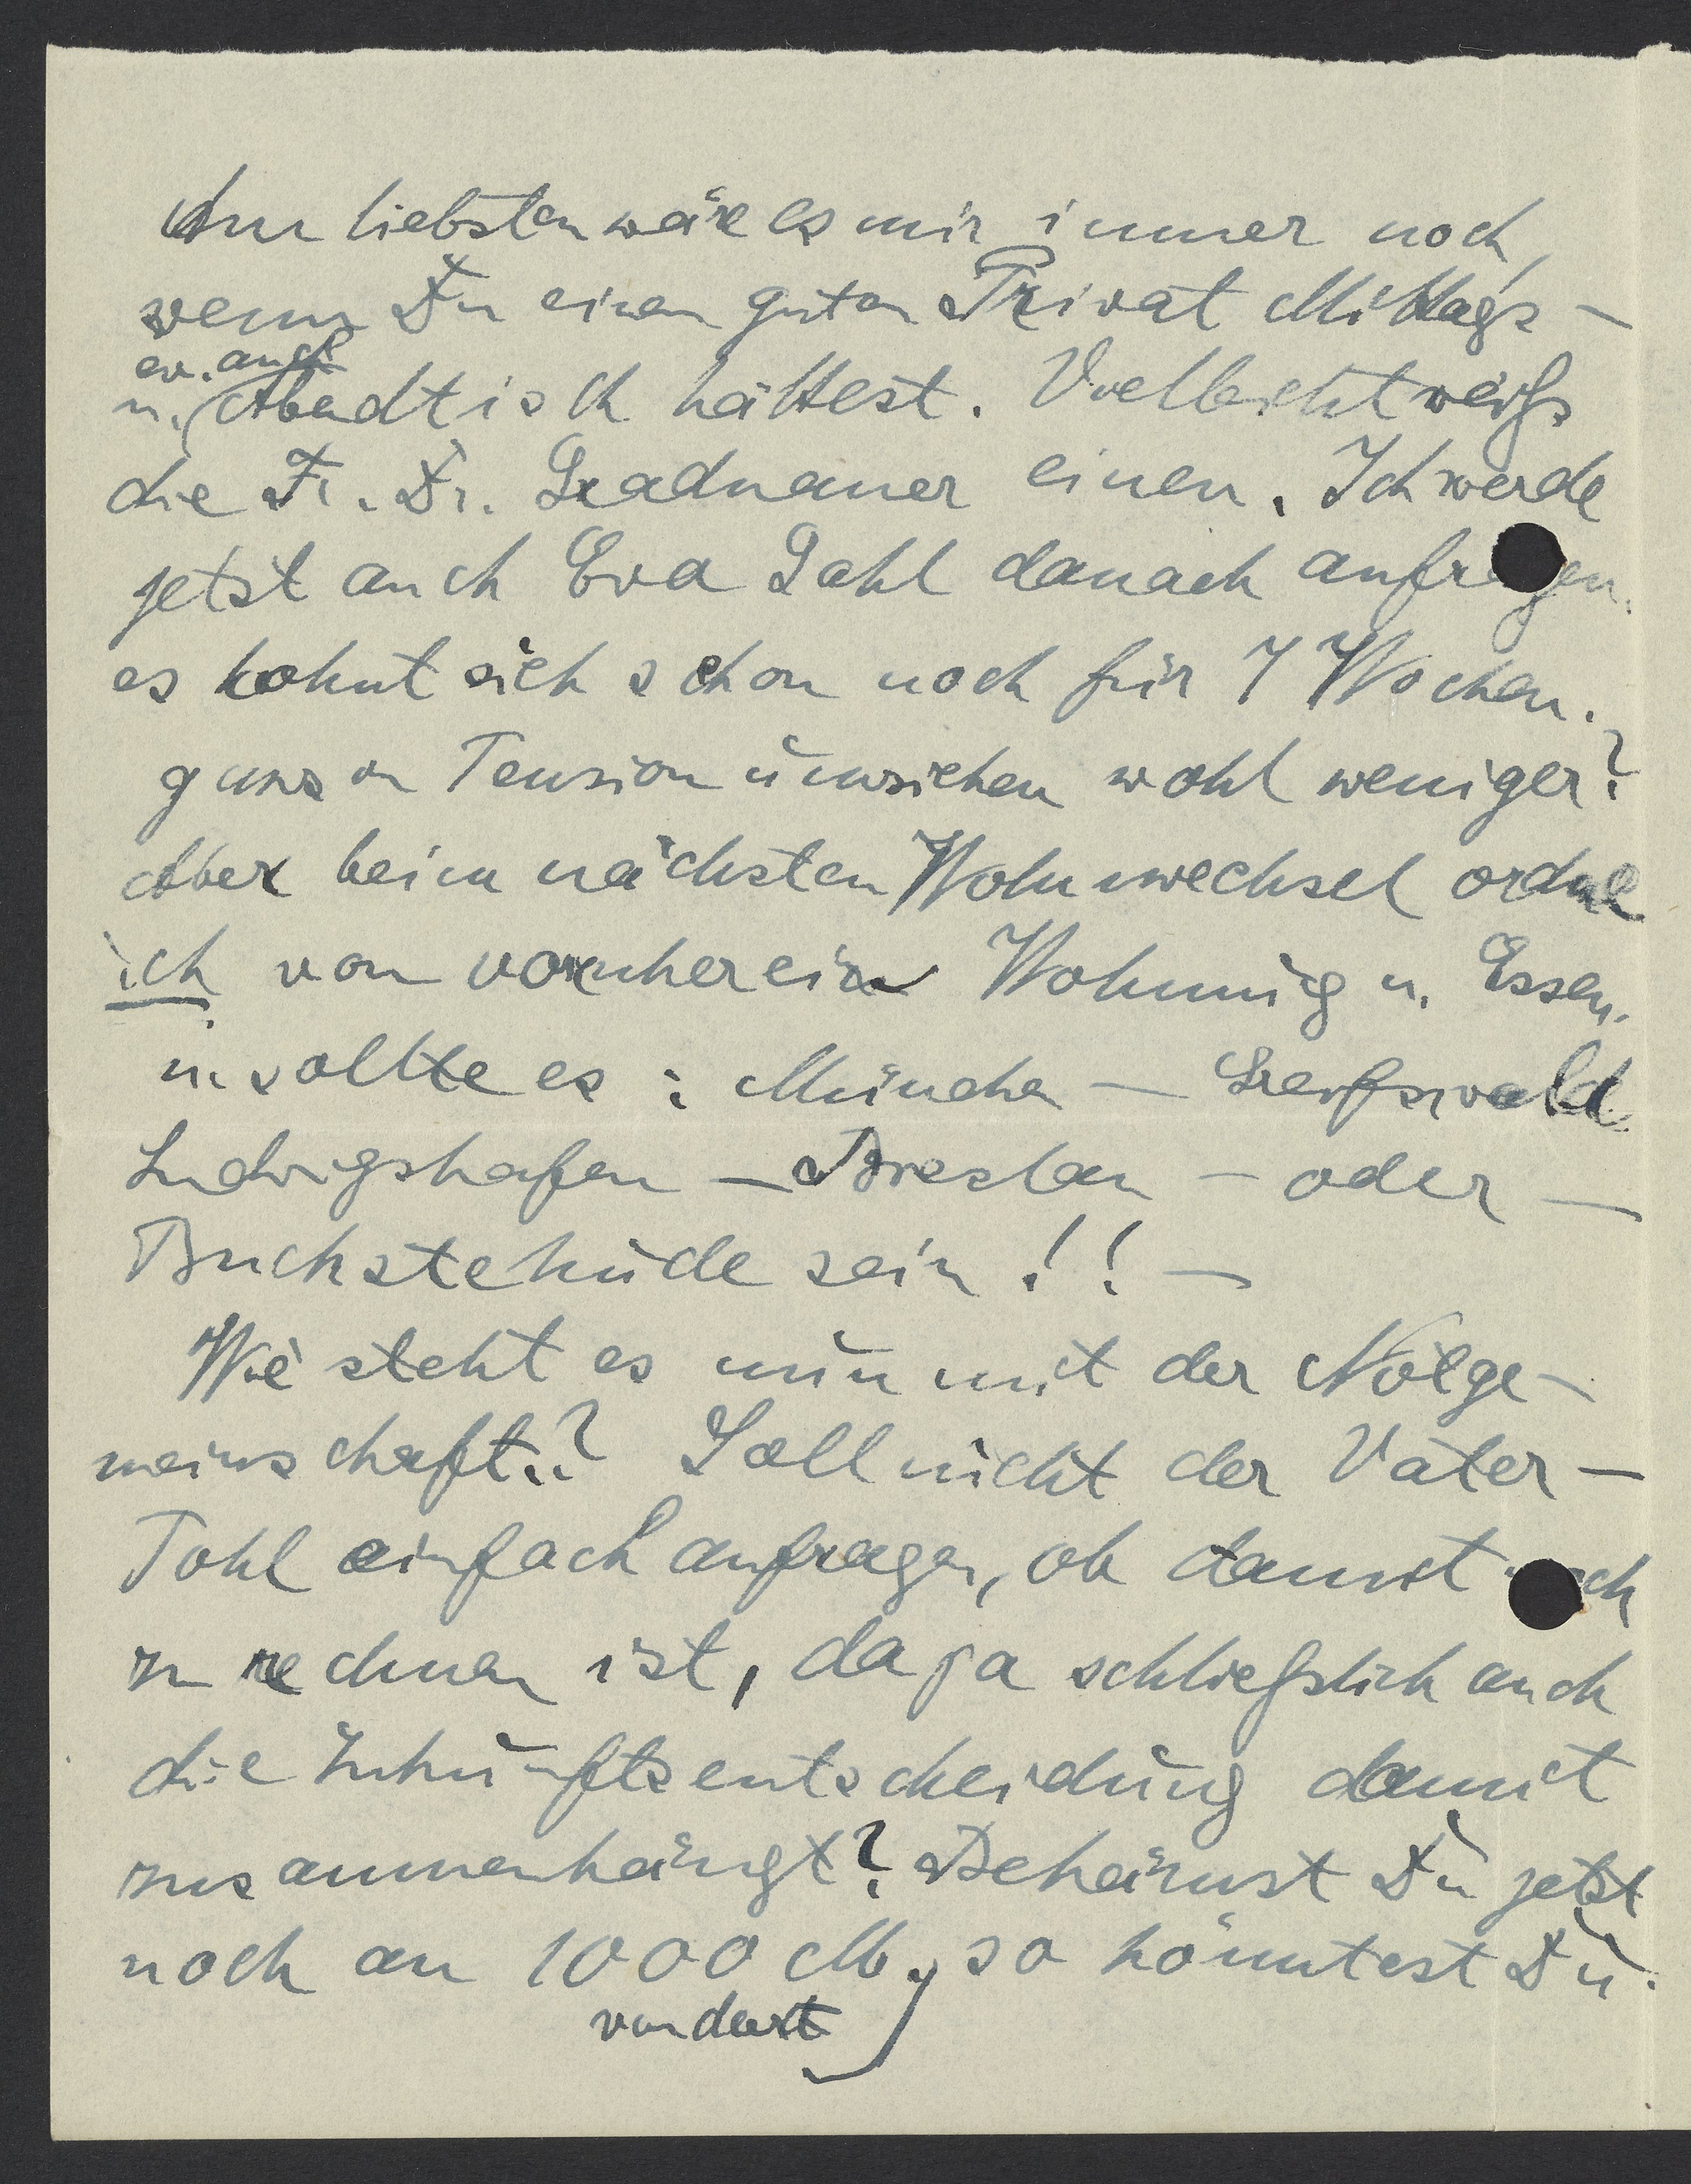 Am liebsten wäre es mir immer noch,
wenn Du einen guten Privat Mittags-
ev. auch
u. Abendtisch hättest. Vielleicht weiß
die Fr. Dr. Gradnauer einen. Ich werde
jetzt auch Eva Dahl danach anfragen.
es lohnt sich schon noch für 7 Wochen.
ganz in Pension umziehen wohl weniger?
Aber beim nächsten Wohnwechsel ordne
ich von vornherein Wohnung u. Essen.
u. sollte es: München – Greifswald
Ludwigshafen – Breslau – oder –
Buchstehude sein!! –
Wie steht es nun mit der Notge-
meinschaft.? Soll nicht der Vater-
Pohl einfach anfragen, ob damit noch
zu rechnen ist, da ja schließlich auch
die Zukunftsentscheidung damit
zusammenhängt? Bekämst Du jetzt
noch an 1000 M, so könntest Du
von dort